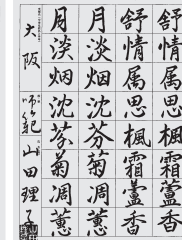 舒情属思楓霜蘆香
舒情属思楓霜蘆香
月淡烟沈芬菊凋蕙
月淡烟沈芬菊凋蕙
大阪 師範 山田理